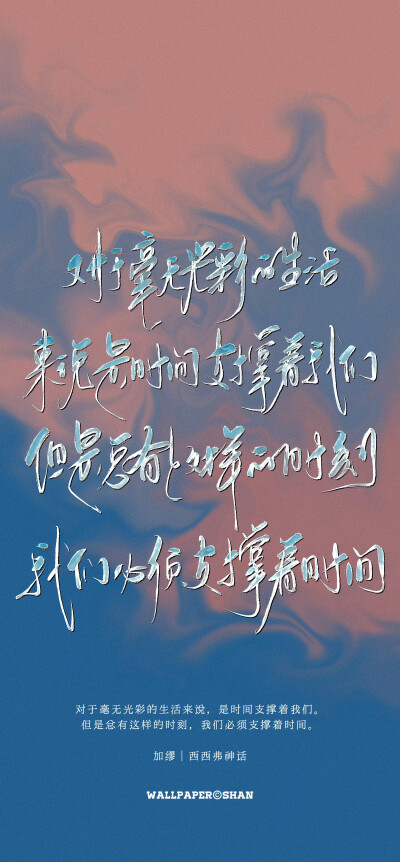 对于毫无光彩的生活
来说是时间支撑着我们
但是总有这样的时刻
我们必须支撑着时间
对于毫无光彩的生活来说，是时间支撑着我们。
但是总有这样的时刻，我们必须支撑着时间。
加缪｜西西弗神话
WALLPAPER©SHAN